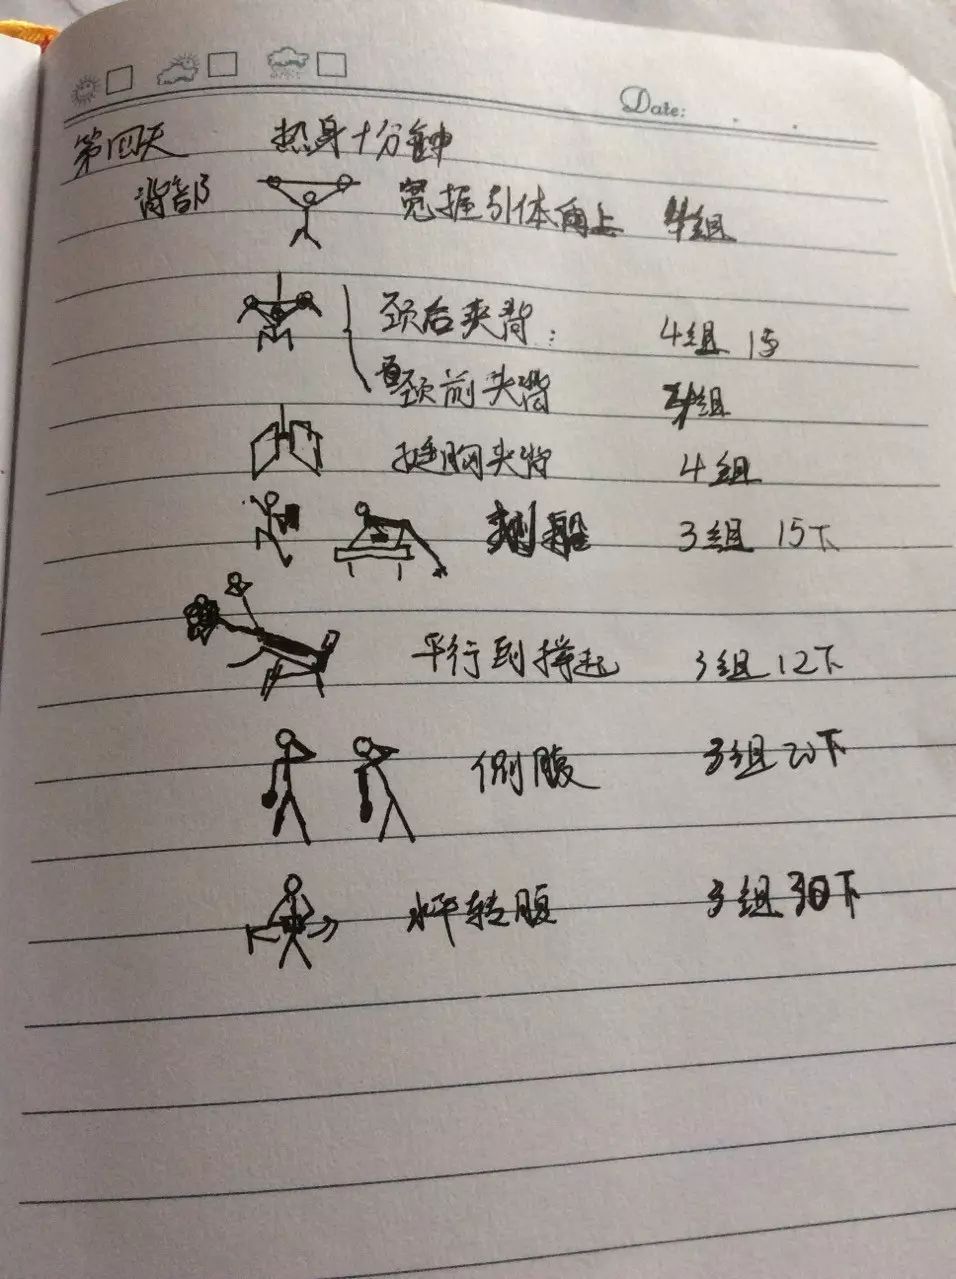 Date:
第四天 热身十分钟
背部 宽握引体向上 4组
颈后夹背: 4组 15
颈前夹背 4组
挺胸夹背 4组
划船 3组 15下
平行到撑起 3组 12下
侧腹 3组 20下
水平转腹 3组 30下